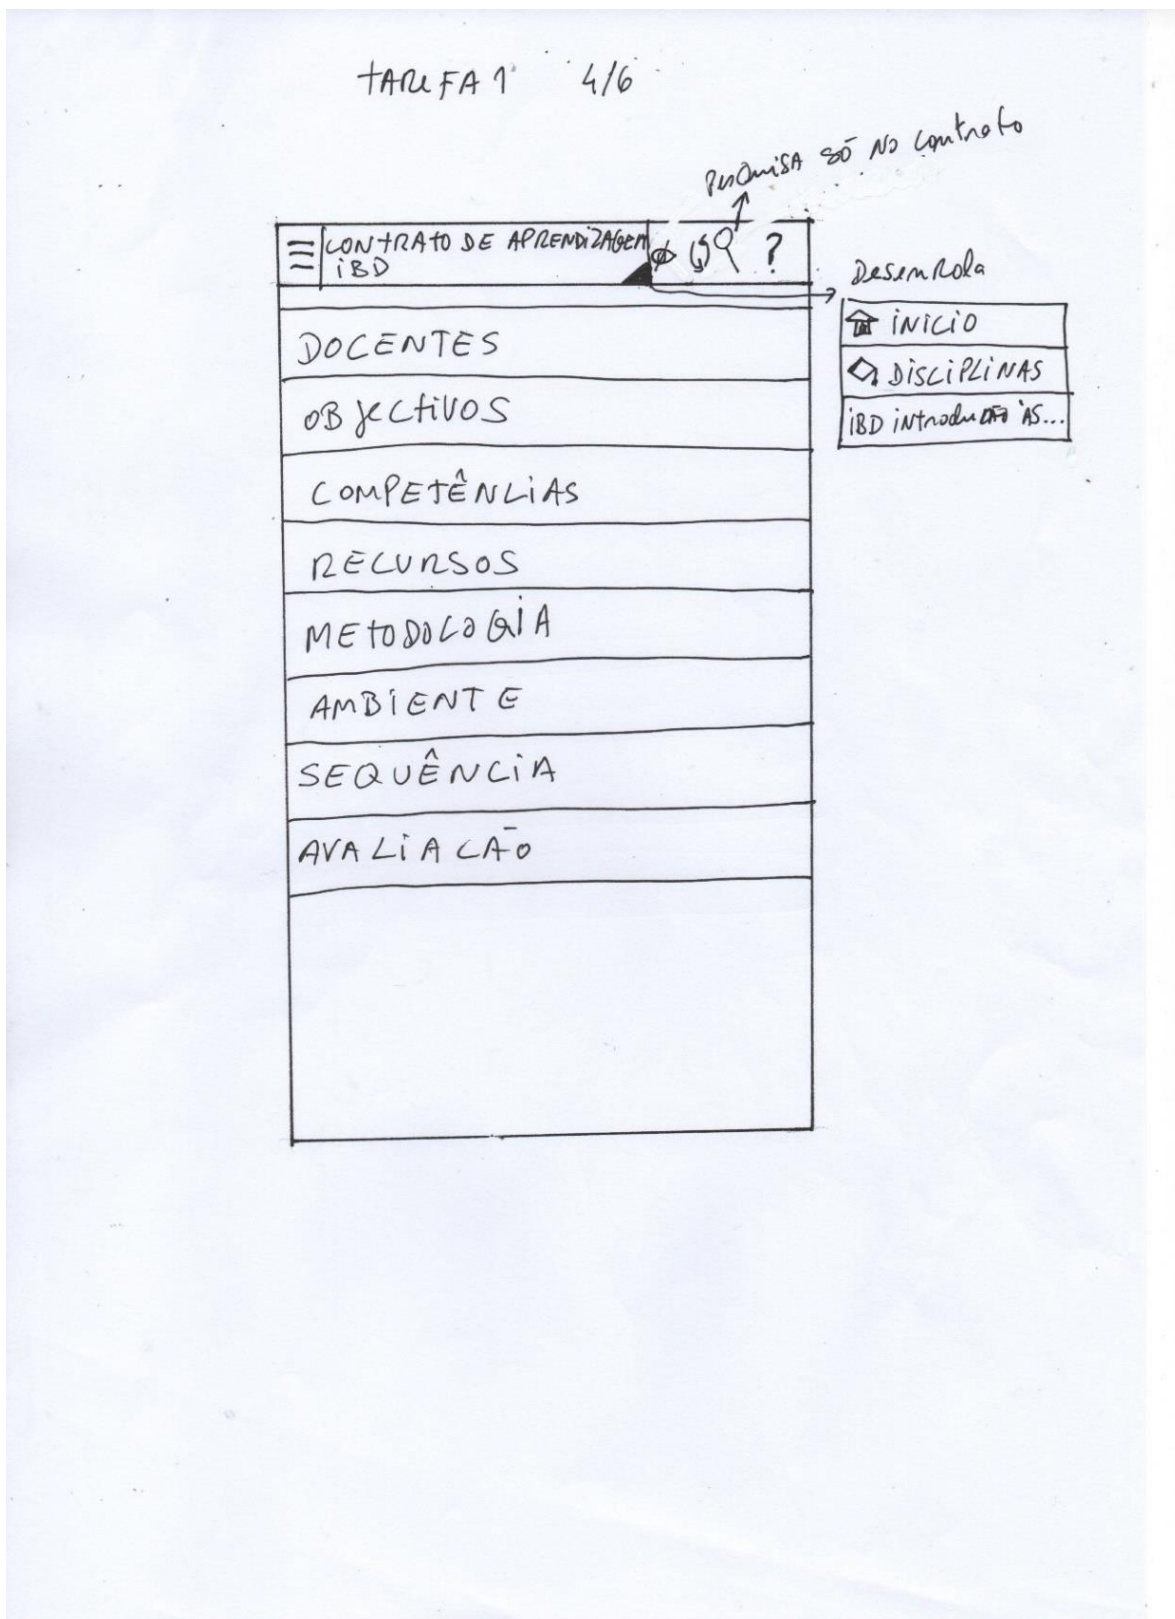 TAREFA 1 4/6
PESQUISA SÓ NO CONTRATO
CONTRATO DE APRENDIZAGEM
IBD
?
Desenrola
INICIO
DISCIPLINAS
IBD INTRODUÇÃO ÀS...
DOCENTES
OBJECTIVOS
COMPETÊNCIAS
RECURSOS
METODOLOGIA
AMBIENTE
SEQUÊNCIA
AVALIACÃO